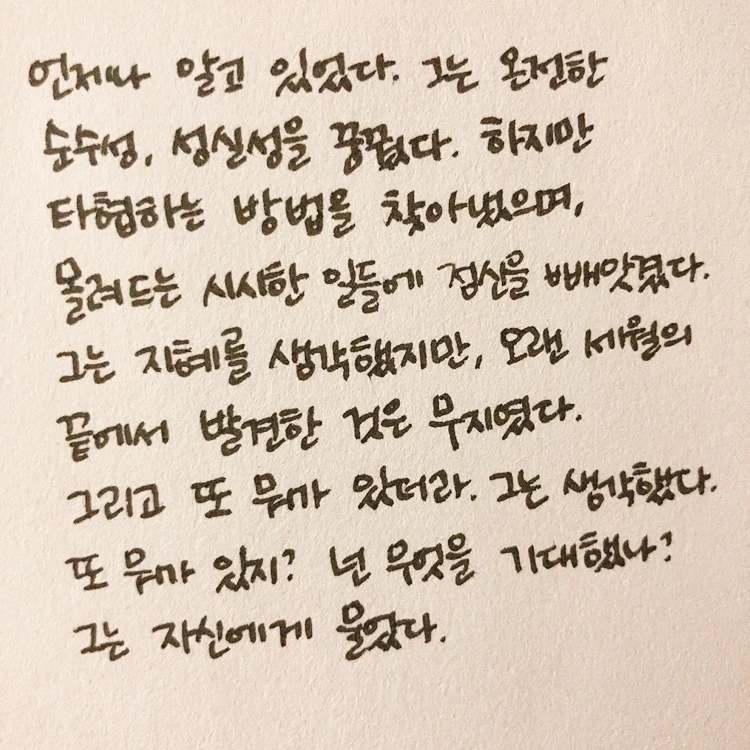 언제나 알고 있었다. 그는 온전한
순수성, 성실성을 꿈꿨다. 하지만
타협하는 방법을 찾아냈으며,
몰려드는 시시한 일들에 정신을 빼앗겼다.
그는 지혜를 생각했지만, 오랜 세월의
끝에서 발견한 것은 무지였다.
그리고 또 뭐가 있더라. 그는 생각했다.
또 뭐가 있지? 넌 무엇을 기대했나?
그는 자신에게 물었다.